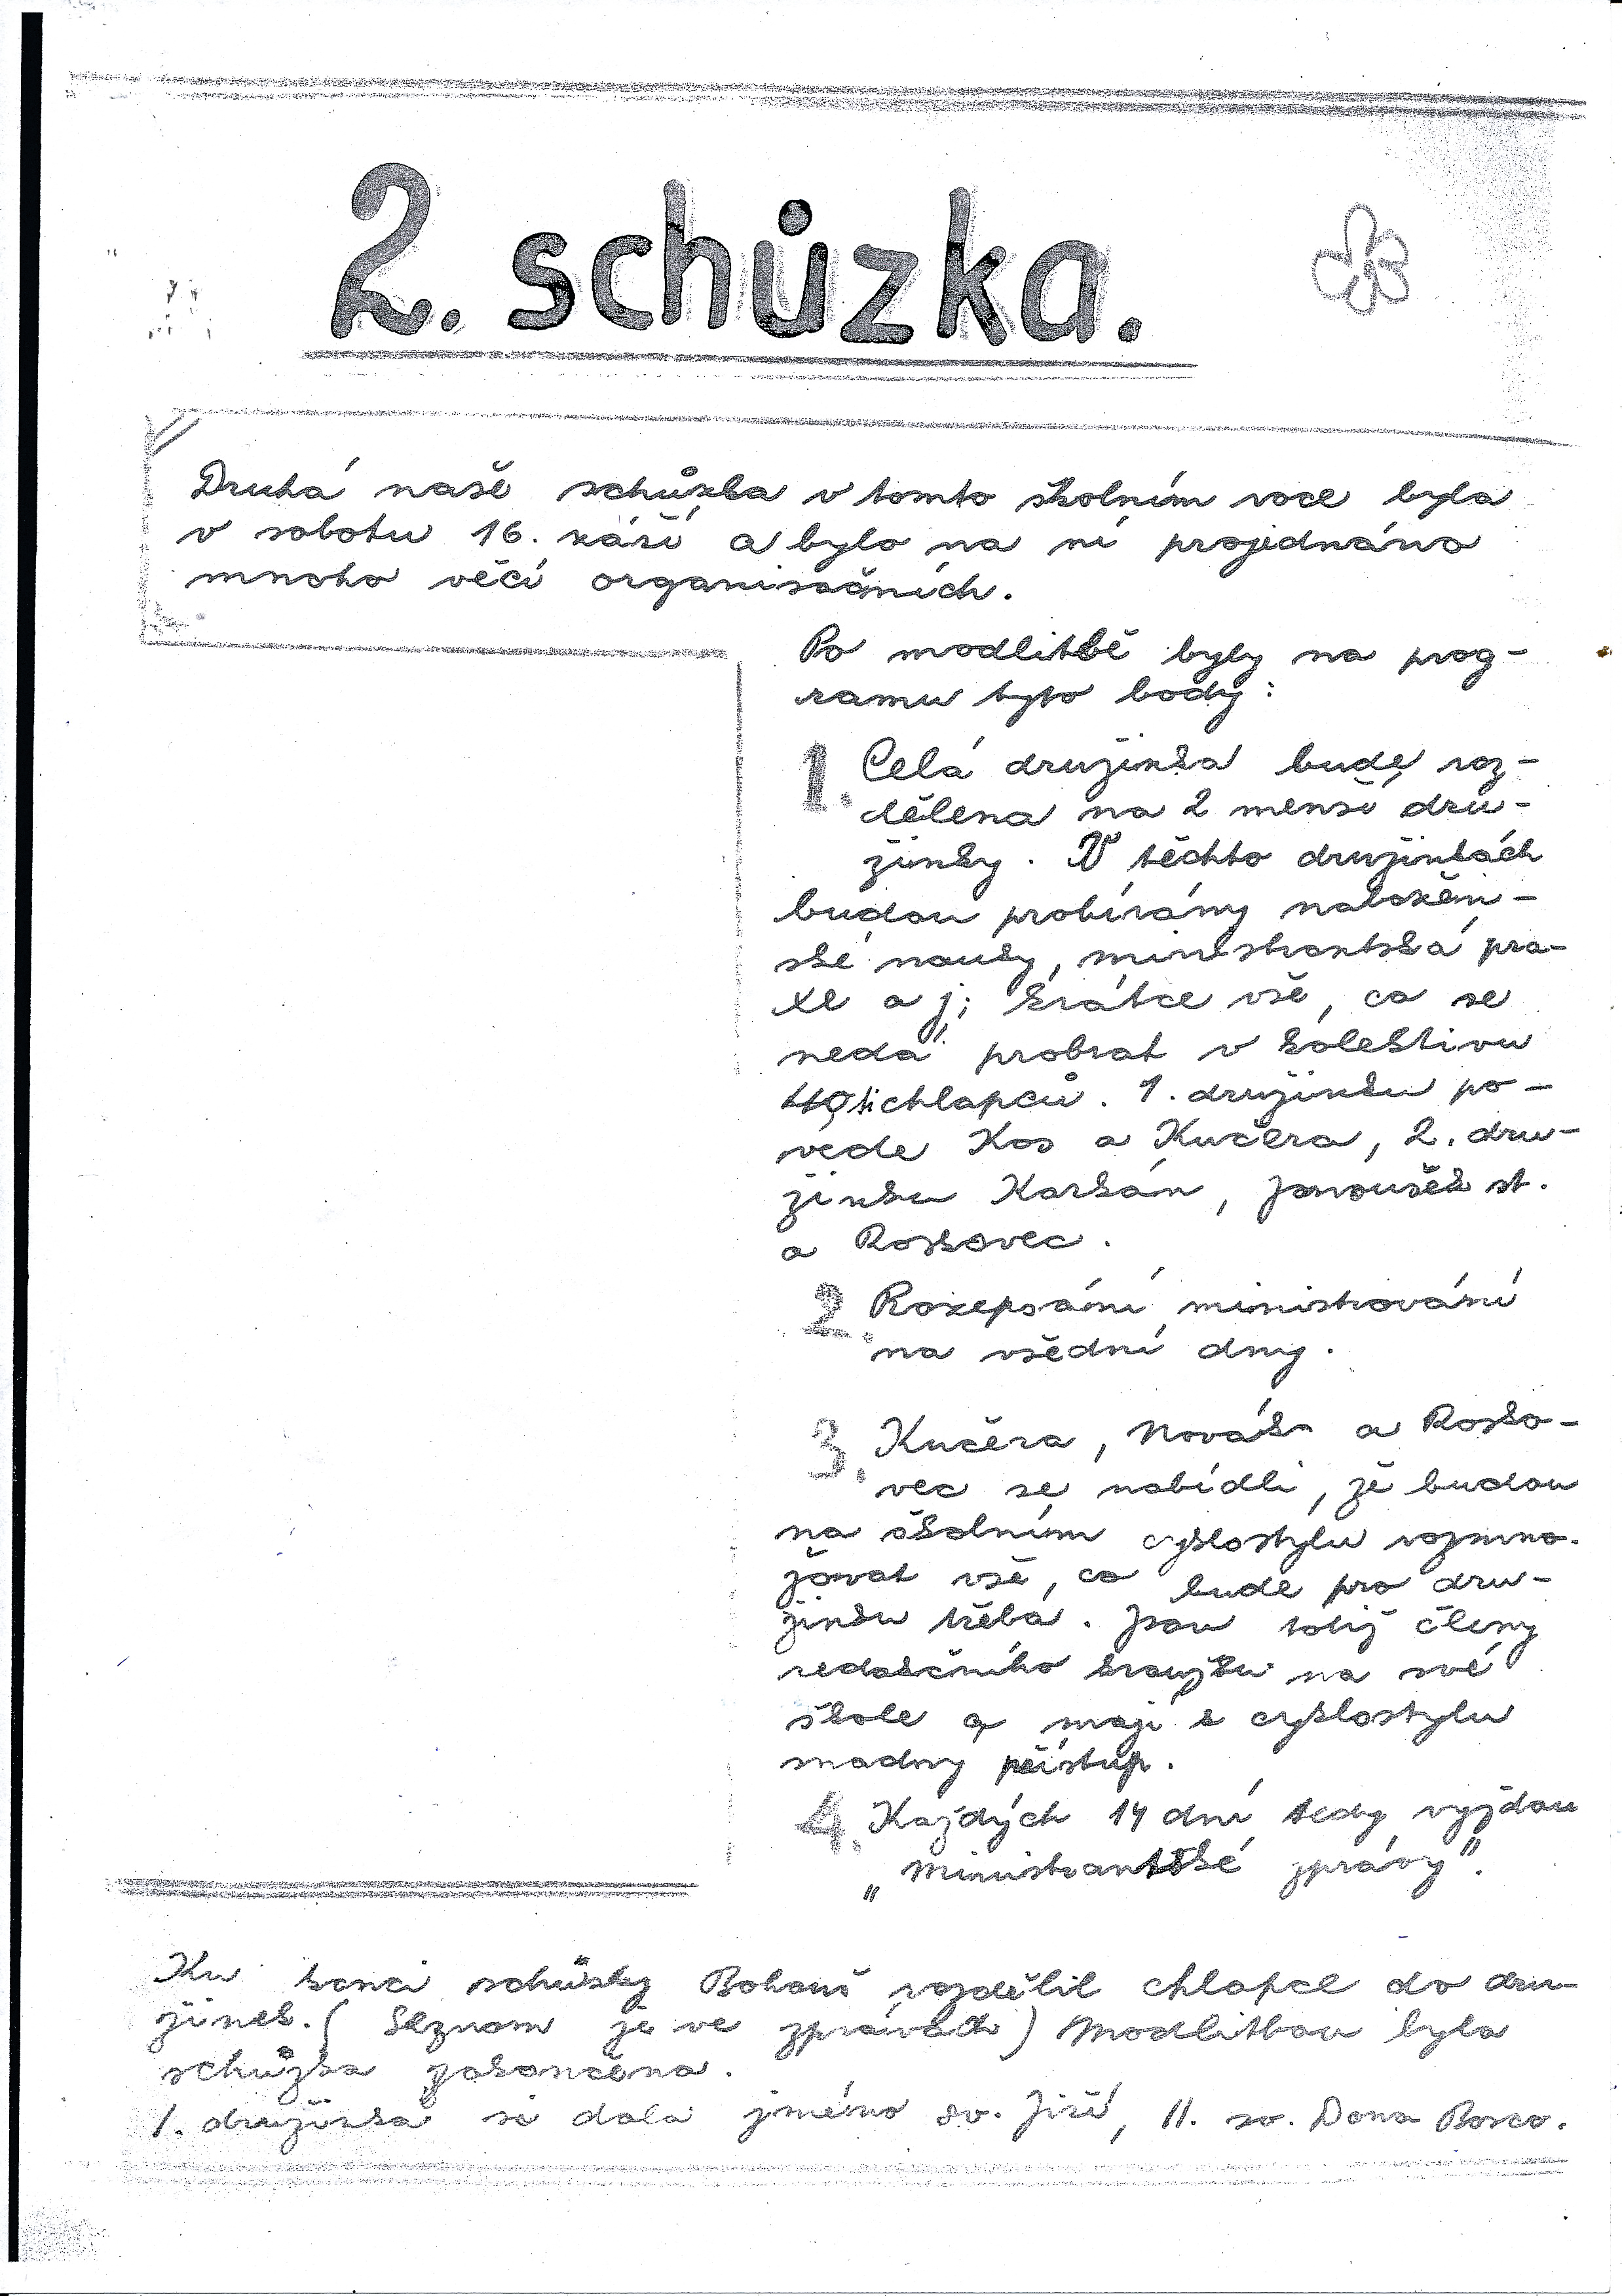 2. schůzka.
Druhá naše schůzka v tomto školním roce byla
v sobotu 16. září a bylo na ní projednáno
mnoho věcí organisačních.
Po modlitbě byly na prog-
ramu tyto body:
1. Celá družinka bude roz-
dělena na 2 menší dru-
žinky. V těchto družinkách
budou probírány nábožen-
ské nauky, ministrantská pra-
xe a j; krátce vše, co se
nedá probrat v kolektivu
chlapců. 1. družinku po-
vede Kos a Kučera, 2. dru-
žinku Karkán, Janoušek st.
a Roskovec.
2. Rozepsání ministrování
na všední dny.
3. Kučera, Novák a Rosko-
vec se nabídli, že budou
na školním cyklostylu rozmno-
žovat vše, co bude pro dru-
žinku třeba. Jsou totiž členy
redakčního kroužku na své
škole a mají k cyklostylu
snadný přístup.
4. Každých 14 dní tedy vyjdou
„Ministrantské zprávy".
Ku konci schůzky Bohouš rozdělil chlapce do dru-
žinek. (Seznam je ve zprávách) Modlitbou byla
schůzka zakončena.
I. družinka si dala jméno sv. Jiří, II. sv. Dona Bosco.